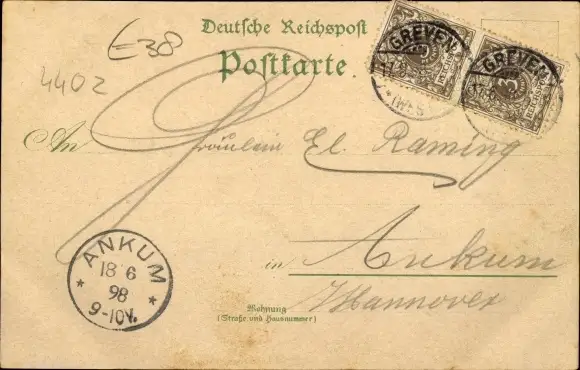 E38
4402
Deutsche Reichspost
Postkarte
GREVEN
17.6
GREVEN
17.6
An Fräulein El. Raming
in Ankum
Hannover
Wohnung
(Straße und Hausnummer)
ANKUM
18 6
98
9-10V.